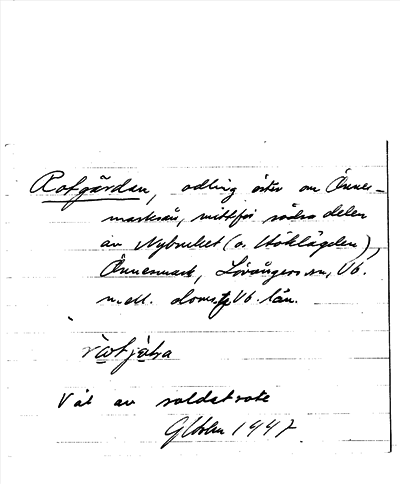 Rotgärdan, odling öster om Önnes-
marksån, mittför södra delen
av Nybruket (o. Stöklägden),
Önnesmark, Lövångers sn, Vb.
n. doms. Vb. län.
Väl av soldatrote
1947